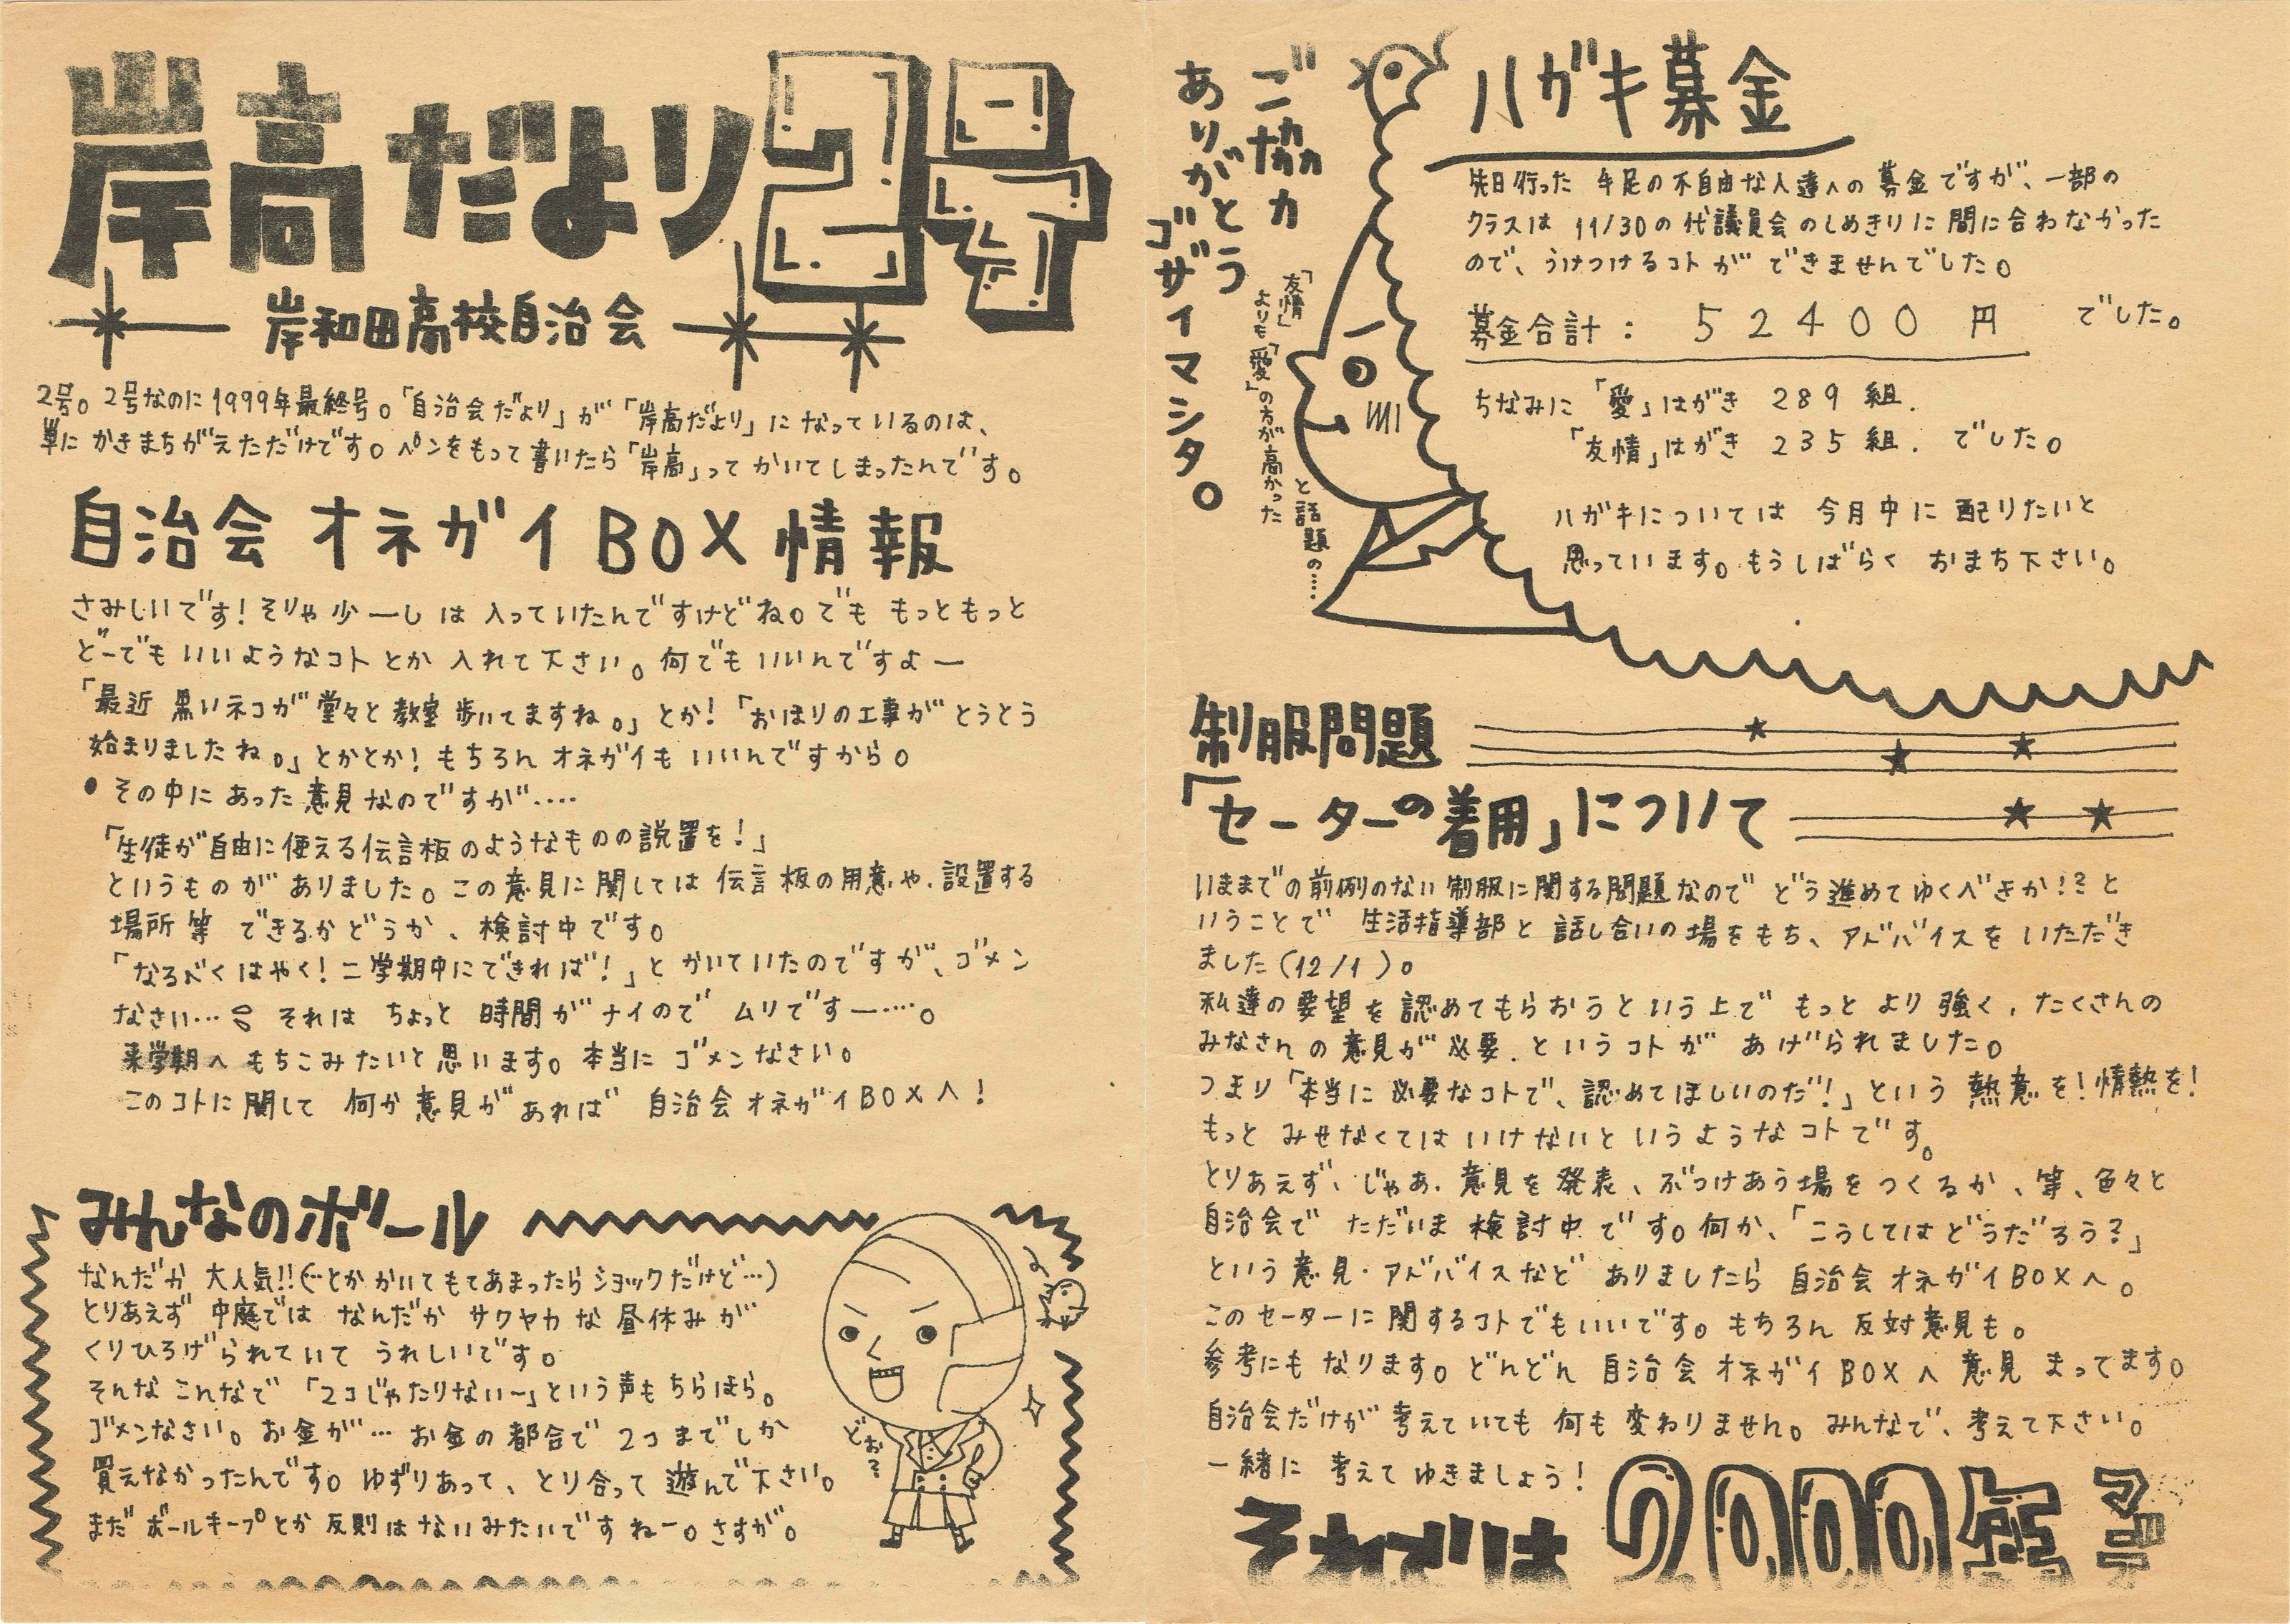 岸高だより2号
岸和田高校自治会
2号。2号なのに1999年最終号。「自治会だより」が「岸高だより」になっているのは、
単にかきまちがえただけです。ペンをもって書いたら「岸高」ってかいてしまったんです。
自治会オネガイBOX情報
さみしいです!そりゃ少ーしは入っていたんですけどね。でももっともっと
どーでもいいようなコトとか入れて下さい。何でもいいんですよー
「最近黒いネコが堂々と教室歩いてますね。」とか!「おほりの工事がとうとう
始まりましたね。」とかとか!もちろんオネガイもいいんですから。
●その中にあった意見なのですが‥‥
「生徒が自由に使える伝言板のようなものの設置を!」
というものがありました。この意見に関しては伝言板の用意や、設置する
場所等できるかどうか、検討中です。
「なるべくはやく!二学期中にできれば!」とかいていたのですが、ゴメン
なさい…それはちょっと時間がナイのでムリですー‥‥。
来学期へもちこみたいと思います。本当にゴメンなさい。
このコトに関して何か意見があれば自治会オネガイBOXへ!
みんなのボール
なんだか大人気!!(…とかかいてもてあまったらショックだけど…)
とりあえず中庭ではなんだかサワヤカな昼休みが
くりひろげられていてうれしいです。
そんなこんなで「2コじゃたりないー」という声もちらほら。
ゴメンなさい。お金が…お金の都合で2コまでしか
買えなかったんです。ゆずりあって、とり合って遊んで下さい。
まだボールキープとか反則はないみたいですねー。さすが。
どお??
ご協力
ありがとう
ゴザイマシタ。
「友情」
よりも「愛」の方が高かった
と話題の‥‥
ハガキ募金
先日行った手足の不自由な人達への募金ですが、一部の
クラスは11/30の代議員会のしめきりに間に合わなかった
ので、うけつけるコトができませんでした。
募金合計: 52400円 でした。
ちなみに「愛」はがき 289組.
「友情」はがき 235組. でした。
ハガキについては今月中に配りたいと
思っています。もうしばらくおまち下さい。
制服問題
「セーターの着用」について
いままでの前例のない制服に関する問題なのでどう進めてゆくべきか!?と
いうことで生活指導部と話し合いの場をもち、アドバイスをいただき
ました(12/1)。
私達の要望を認めてもらおうという上でもっとより強く,たくさんの
みなさんの意見が必要.というコトがあげられました。
つまり「本当に必要なコトで、認めてほしいのだ!」という熱意を!情熱を!
もっとみせなくてはいけないというようなコトです。
とりあえず、じゃあ、意見を発表、ぶつけあう場をつくるか、等、色々と
自治会でただいま検討中です。何か、「こうしてはどうだろう?」
という意見・アドバイスなどありましたら自治会オネガイBOXへ。
このセーターに関するコトでもいいです。もちろん反対意見も。
参考にもなります。どんどん自治会オネガイBOXへ意見まってます。
自治会だけが考えていても何も変わりません。みんなで、考えて下さい。
一緒に考えてゆきましょう!
それでは2000年